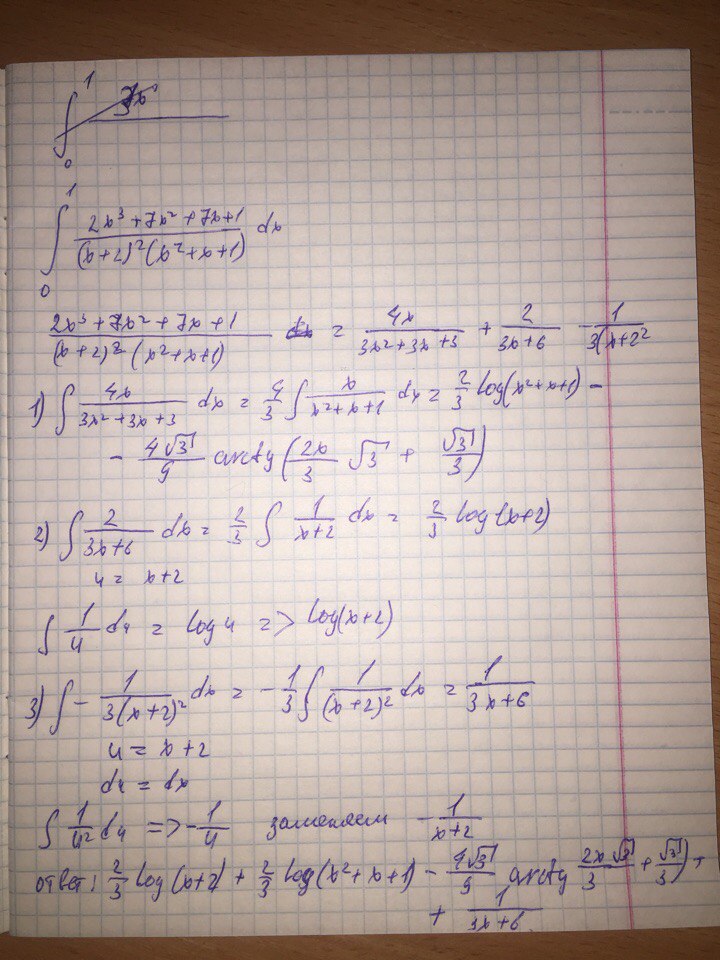 ∫₀¹ 7x
∫₀¹ (2x³ + 7x² + 7x + 1)/((x+2)²(x²+x+1)) dx
(2x³ + 7x² + 7x + 1)/((x+2)²(x²+x+1)) dx = 4x/(3x²+3x+3) + 2/(3x+6) - 1/(3(x+2²
1) ∫ 4x/(3x²+3x+3) dx = 4/3 ∫ x/(x²+x+1) dx = 2/3 log(x²+x+1) -
- 4√3/9 arctg(2x/3 √3 + √3/3)
2) ∫ 2/(3x+6) dx = 2/3 ∫ 1/(x+2) dx = 2/3 log(x+2)
u = x+2
∫ 1/u du = log u => log(x+2)
3) ∫ - 1/(3(x+2)²) dx = -1/3 ∫ 1/(x+2)² dx = 1/(3x+6)
u = x+2
du = dx
∫ 1/u² du => -1/u заменяем -1/(x+2)
ответ: 2/3 log(x+2) + 2/3 log(x²+x+1) - 4√3/9 arctg 2x√3/3 + √3/3) +
+ 1/(3x+6)